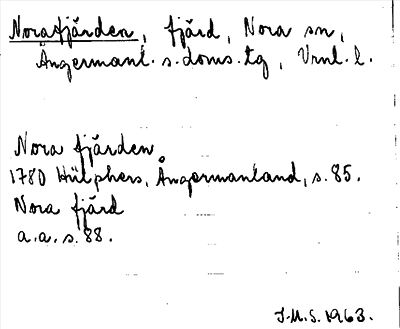 Norafjärden, fjärd, Nora sn,
Ångermanl. s. doms. tg, Vrnl. l.
Nora fjärden
1780 Hülphers, Ångermanland, s. 85.
Nora fjärd
a.a. s. 88.
J.M.S. 1963.